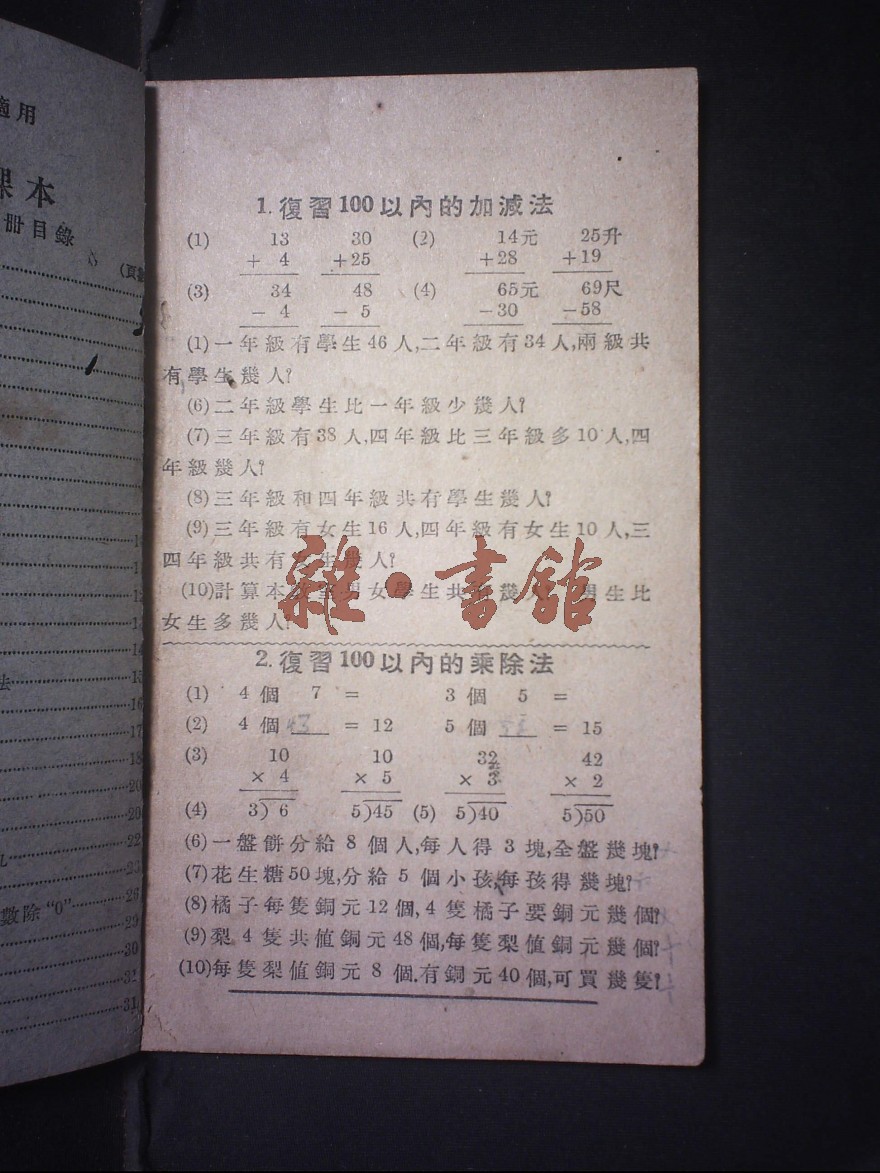 適用
課本
冊目錄
1. 復習100以內的加減法
(1) 13 30 (2) 14元 25升
+ 4 +25 +28 +19
(3) 34 48 (4) 65元 69尺
- 4 - 5 -30 -58
(1)一年級有學生46人,二年級有34人,兩級共
有學生幾人?
(6)二年級學生比一年級少幾人?
(7)三年級有38人,四年級比三年級多10人,四
年級幾人?
(8)三年級和四年級共有學生幾人?
(9)三年級有女生16人,四年級有女生10人,三
四年級共有女生幾人?
(10)計算本教室男女學生共有幾人?男生比
女生多幾人?
雜·書館
2. 復習100以內的乘除法
(1) 4個 7 = 3個 5 =
(2) 4個 = 12 5個 = 15
(3) 10 10 32 42
× 4 × 5 × 3 × 2
(4) 3)6 5)45 (5) 5)40 5)50
(6)一盤餅分給8個人,每人得3塊,全盤幾塊?
(7)花生糖50塊,分給5個小孩,每孩得幾塊?
(8)橘子每隻銅元12個,4隻橘子要銅元幾個?
(9)梨4隻共值銅元48個,每隻梨值銅元幾個?
(10)每隻梨值銅元8個.有銅元40個,可買幾隻?
法
數除“0”